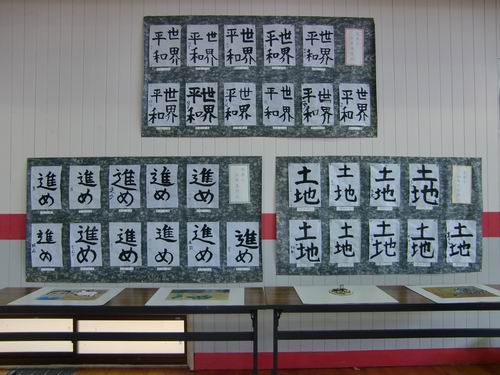 世界
平和
世界
平和
世界
平和
世界
平和
世界
平和
世界
平和
世界
平和
世界
平和
世界
平和
世界
平和
世界
平和
進め
進め
進め
進め
進め
進め
進め
進め
進め
進め
進め
土地
土地
土地
土地
土地
土地
土地
土地
土地